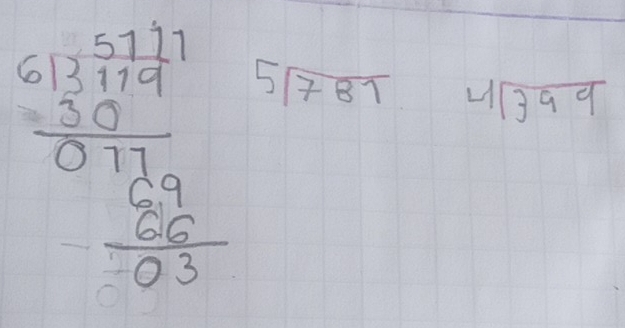 5111
6⟌3119
- 30
011
69
66
- 03
5⟌781
4⟌399